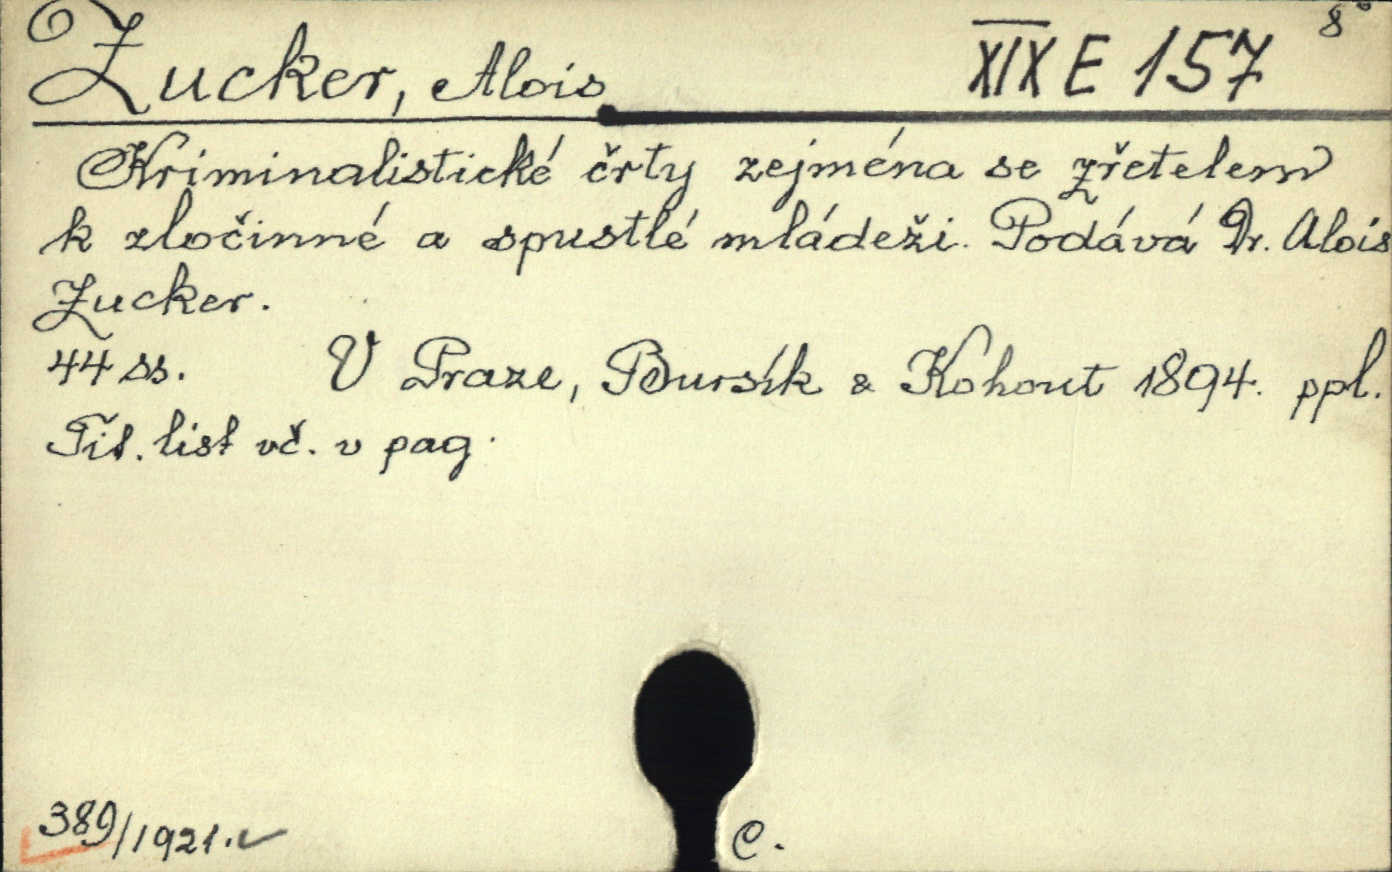 8°
Zucker, Alois XIX E 157
Kriminalistické črty zejména se zřetelem
k zločinné a spustlé mládeži. Podává Dr. Alois
Zucker.
44 ss. V Praze, Bursík & Kohout 1894. ppl.
Tit. list vč. v pag.
389/1921.
C.